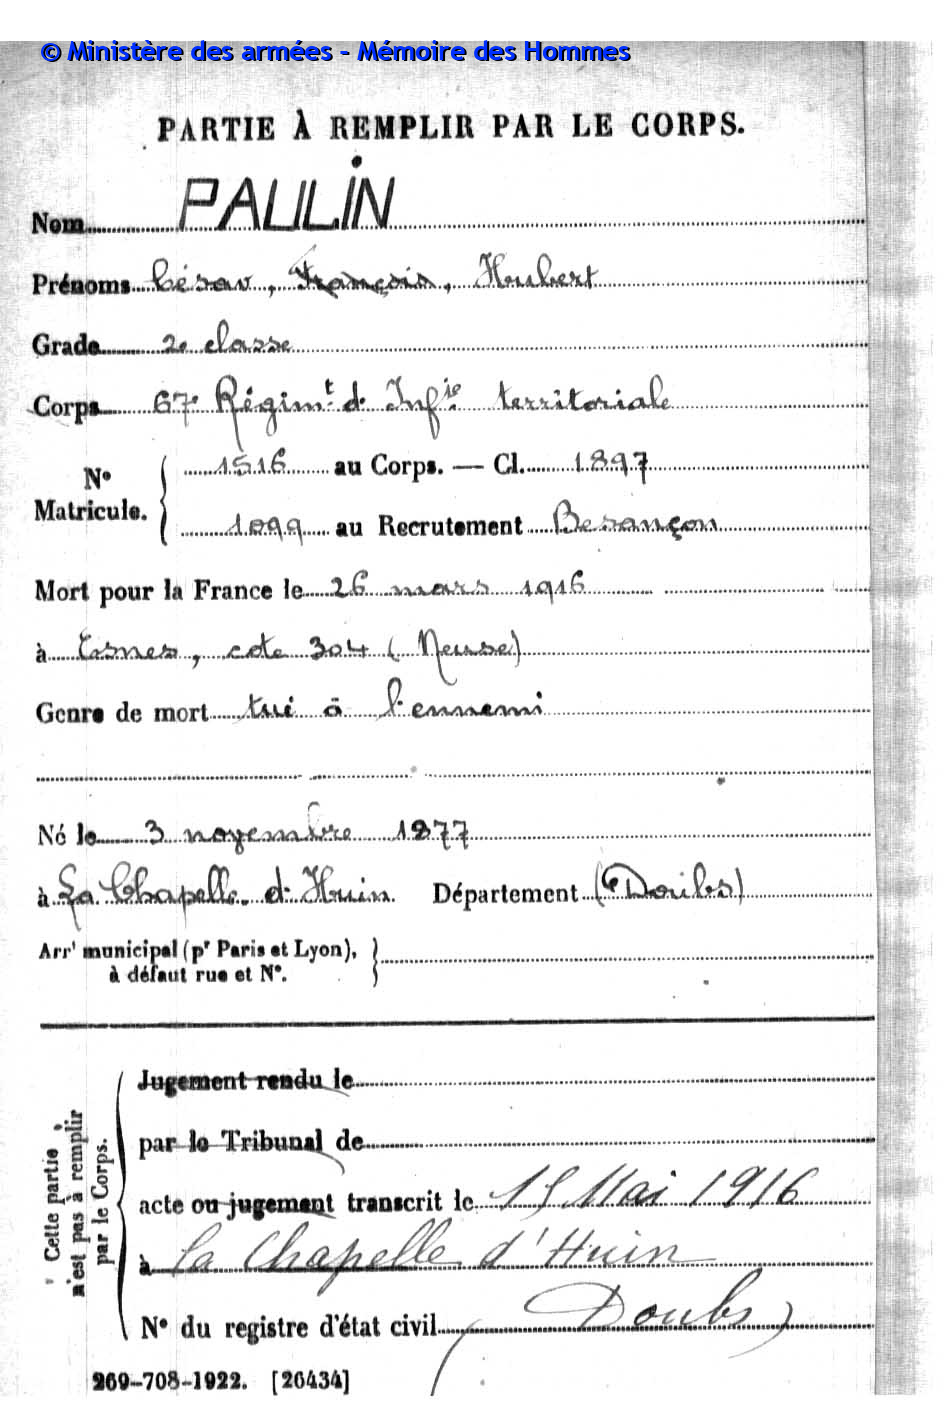 © Ministère des armées - Mémoire des Hommes
PARTIE À REMPLIR PAR LE CORPS.
Nom PAULIN
Prénoms César, François, Hubert
Grade 2e classe
Corps 67e Régimt d'Infie territoriale
No Matricule. 1516 au Corps. — Cl. 1897
1099 au Recrutement Besançon
Mort pour la France le 26 mars 1916
à Esnes, cote 304 (Meuse)
Genre de mort tué à l'ennemi
Né le 3 novembre 1877
à La Chapelle d'Huin Département (Doubs)
Arrt municipal (pr Paris et Lyon),
à défaut rue et No.
Cette partie
n'est pas à remplir
par le Corps.
Jugement rendu le
par le Tribunal de
acte ou jugement transcrit le 15 Mai 1916
à La Chapelle d'Huin
No du registre d'état civil (Doubs)
269-708-1922. [26434]